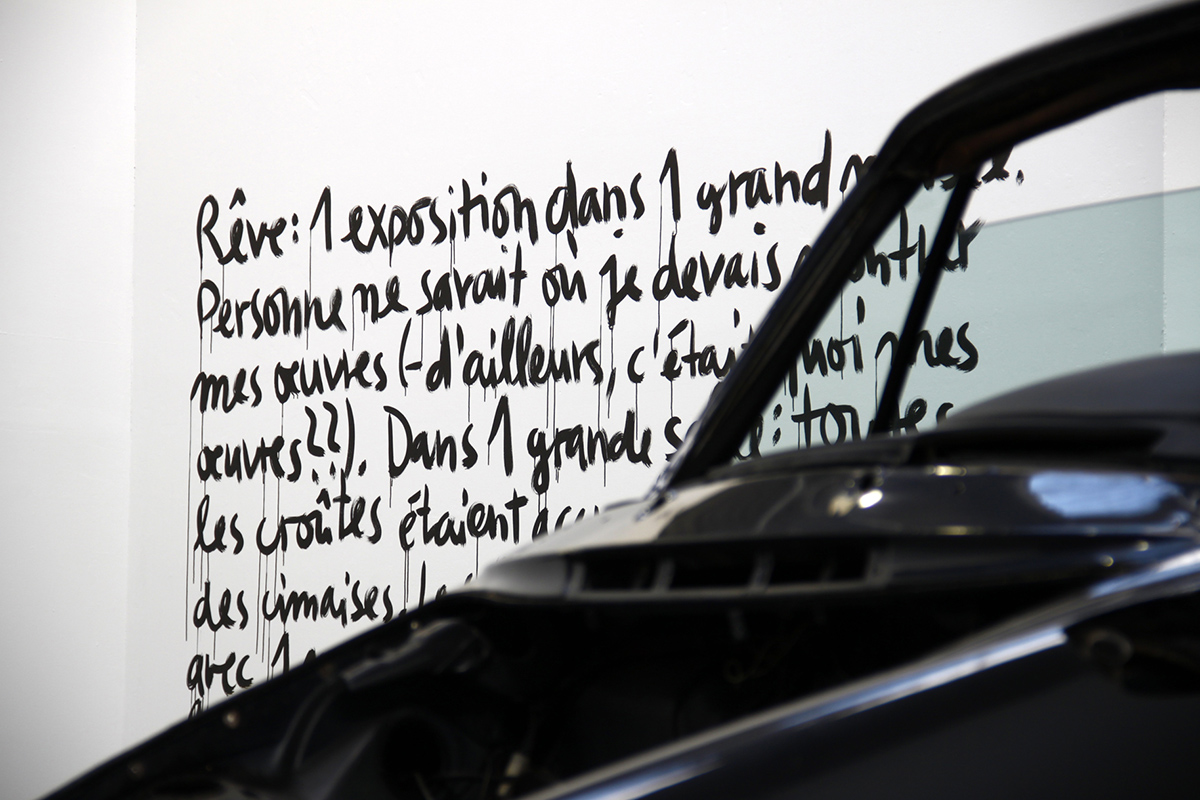 Rêve: 1 exposition dans 1 grand
Personne ne savait où je devais
mes œuvres (-d'ailleurs, c'était quoi mes
œuvres??). Dans 1 grande toutes
les croûtes étaient
des cimaises.
avec 1